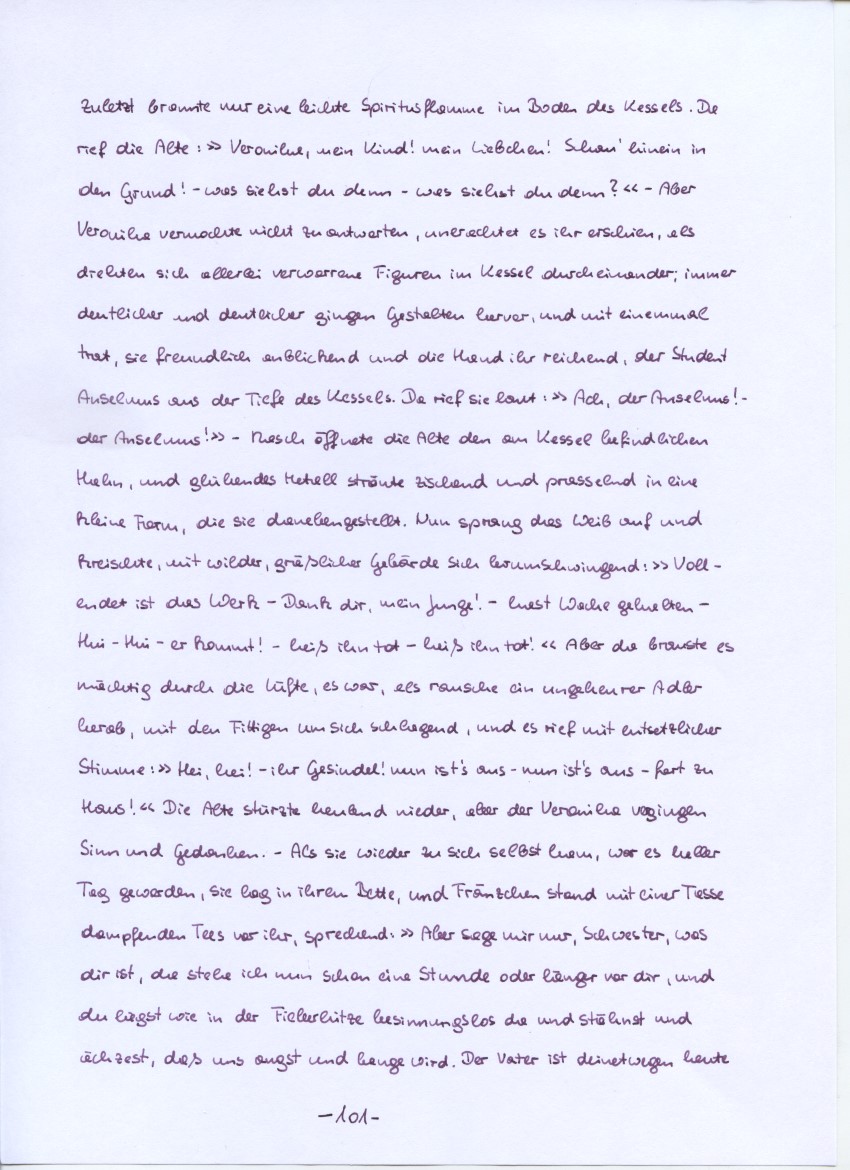 Zuletzt brannte nur eine leichte Spiritusflamme im Boden des Kessels. Da
rief die Alte: »Veronika, mein Kind! mein Liebchen! Schau' hinein in
den Grund! – was siehst du denn – was siehst du denn?« – Aber
Veronika vermochte nicht zu antworten, unerachtet es ihr erschien, als
drehten sich allerlei verworrene Figuren im Kessel durcheinander; immer
deutlicher und deutlicher gingen Gestalten hervor, und mit einemmal
trat, sie freundlich anblickend und die Hand ihr reichend, der Student
Anselmus aus der Tiefe des Kessels. Da rief sie laut: »Ach, der Anselmus! –
der Anselmus!» – Rasch öffnete die Alte den am Kessel befindlichen
Hahn, und glühendes Metall strömte zischend und prasselnd in eine
kleine Form, die sie danebengestellt. Nun sprang das Weib auf und
kreischte, mit wilder, gräßlicher Gebärde sich herumschwingend: »Voll-
endet ist das Werk – Dank dir, mein Junge! – hast Wache gehalten –
Hui – Hui – er kommt! – beiß ihn tot – beiß ihn tot!« Aber da brauste es
mächtig durch die Lüfte, es war, als rausche ein ungeheurer Adler
herab, mit den Fittigen um sich schlagend, und es rief mit entsetzlicher
Stimme: »Hei, hei! – ihr Gesindel! nun ist's aus – nun ist's aus – fort zu
Haus!« Die Alte stürzte heulend nieder, aber der Veronika vergingen
Sinn und Gedanken. – Als sie wieder zu sich selbst kam, war es heller
Tag geworden, sie lag in ihrem Bette, und Fränzchen stand mit einer Tasse
dampfenden Tees vor ihr, sprechend: »Aber sage mir nur, Schwester, was
dir ist, da stehe ich nun schon eine Stunde oder länger vor dir, und
du liegst wie in der Fieberhitze besinnungslos da und stöhnst und
ächzest, daß uns angst und bange wird. Der Vater ist deinetwegen heute
–101–